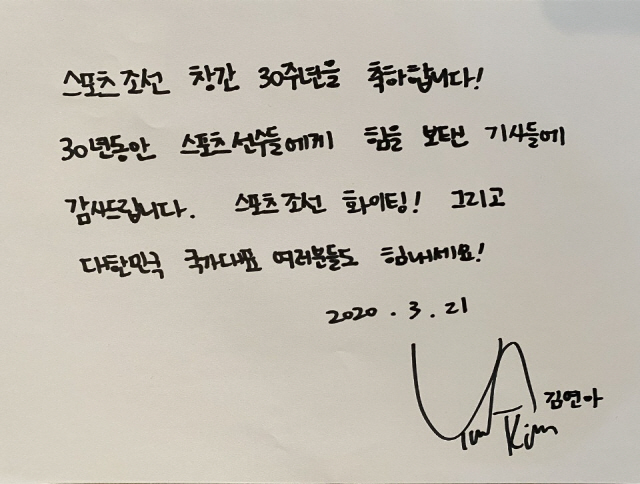 스포츠조선 창간 30주년을 축하합니다!
30년동안 스포츠선수들에게 힘을 보태준 기사들에
감사드립니다. 스포츠조선 화이팅! 그리고
대한민국 국가대표 여러분들도 힘내세요!
2020.3.21
김연아
Yuna Kim